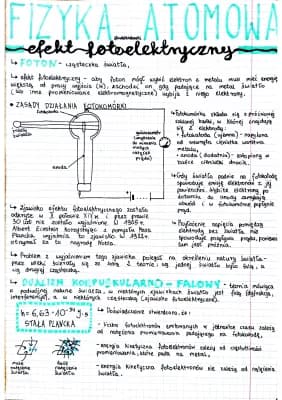 FIZYKA ATOMOWA
efekt fotoelektryczny
FOTON - cząsteczka światła,
efekt fotoelektryczny - aby foton mógł wybić elektron z metalu musi mieć energię
większą, od pracy wyjścia (W), zachodzi on gdy padające na metal światło
(lub inne promieniowanie elektromagnetyczne) wybija z niego elektrony.
ZASADY DZIAŁANIA FOTOKOMÓRKI
fotokatoda
promienie
światła
anoda
Fotokomórka składa się z próżniowej
szklanej bańki, w której znajdują
się 2 elektrody:
fotokatoda (ujemna) - napylona
na wewnętrzna ścianka warstwa
metalu,
anoda (dodatnia) - zatopiony w
środku drucik.
Gdy światło padnie na fotokatodę
spowoduje emisję elektronów z jej
powierzchni. Wybite elektrony po
dotarciu do anody zamykają
obwód i w fotokomórce popłynie
prąd.
Zjawisko efektu fotoelektrycznego zostało
odkryte w II połowie XIX w. i przez prawie
30 lat nie zostało wyjaśnione. W 1905 r.
Albert Einstein korzystając z pomysłu Maxa
Plancka wyjaśnił to zjawisko. W 1921 r.
otrzymał za to nagrodę Nobla.
Przyłożone napięcie pomiędzy
elektrody bez światła nie
spowoduje przepływu prądu, ponieważ
tam jest próżnia.
Problem z wyjaśnieniem tego zjawiska polegał na określeniu natury światła -
DUALIZM KORPUSKULARNO - FALOWY - teoria mówiąca
o podwójnej naturze światła, w niektórych zjawiskach światło jest falą (dyfrakcja,
interferencja), a w niektórych cząsteczką (zjawisko fotoelektryczne).
h = 6,63 · 10⁻³⁴ J · s
STAŁA PLANCKA
Doświadczalnie stwierdzono, że:
liczba fotoelektronów emitowanych w jednostce czasu zależy
od natężenia promieniowania (światła),
energia kinetyczna fotoelektronów zależy od częstotliwości
promieniowania, które pada na metal,
energia kinetyczna fotoelektronów nie zależy od natężenia
małe
natężenie
światła
duże
natężenie
światła